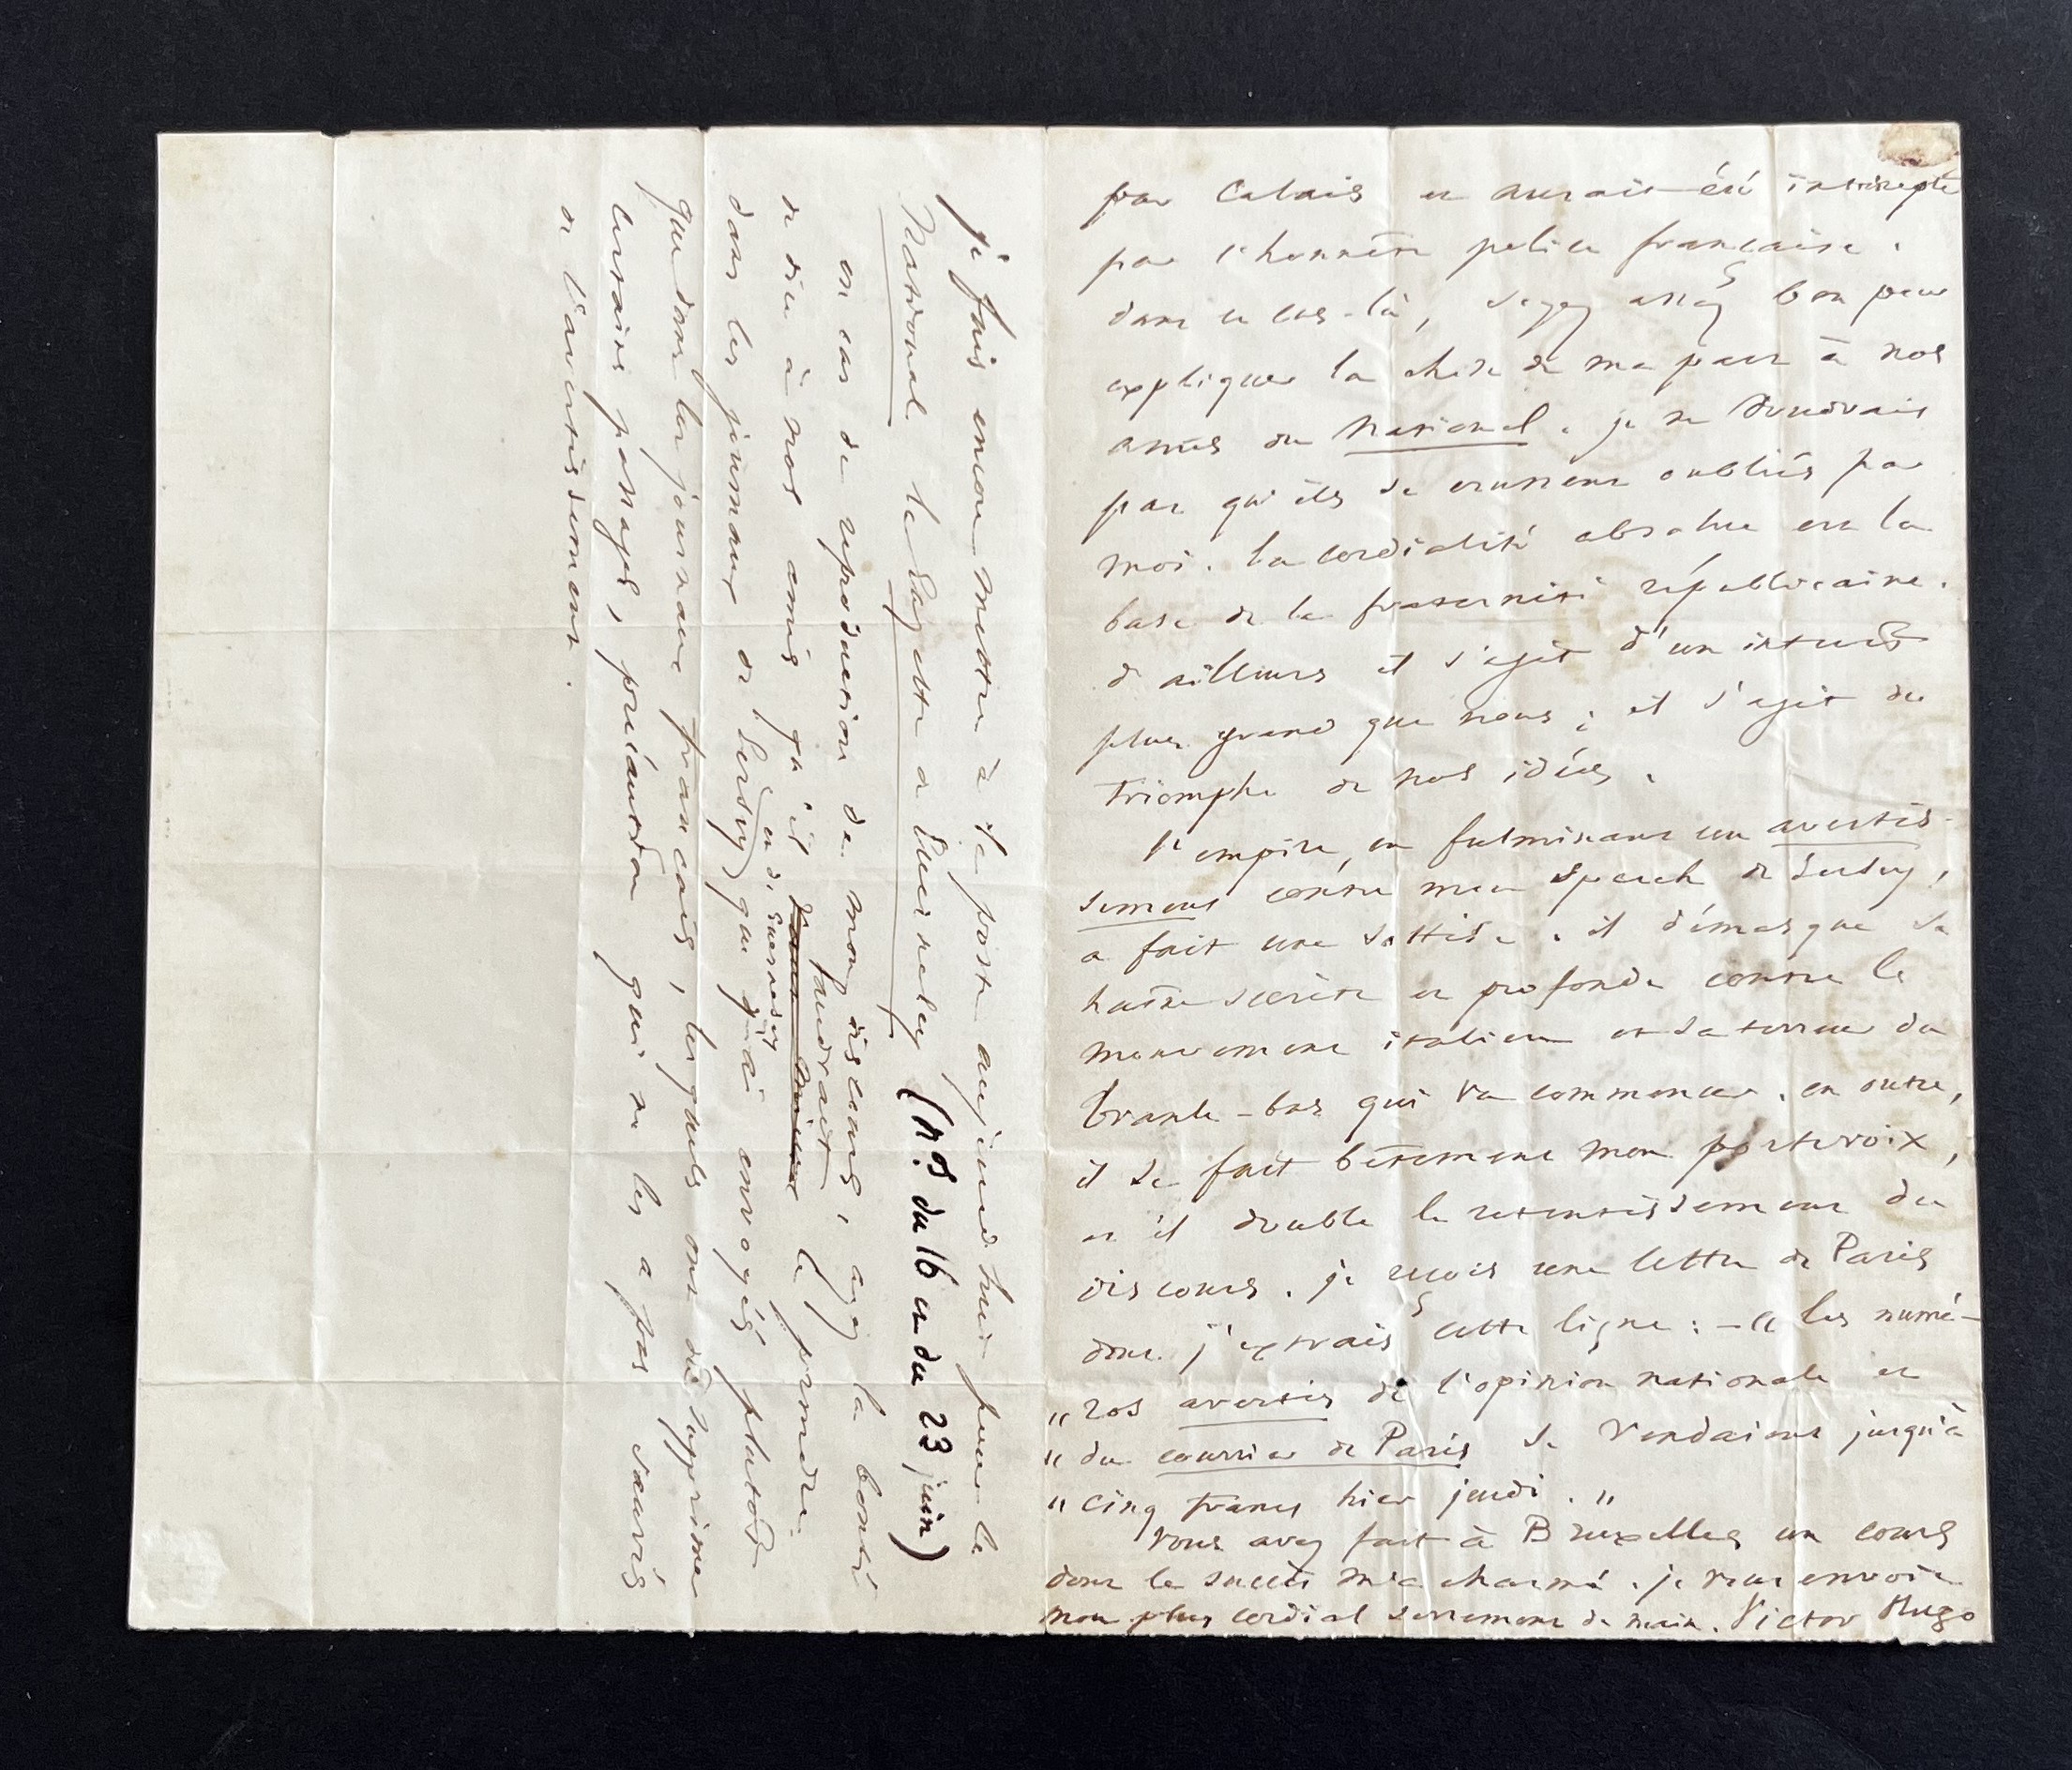 par Calais et aurait été intercepté
par l'honnête police française.
dans ce cas-là, soyez assez bon pour
expliquer la chose de ma part à nos
amis du National. je ne voudrais
pas qu'ils se crussent oubliés par
moi. la cordialité absolue est la
base de la fraternité républicaine.
d'ailleurs il s'agit d'un intérêt
plus grand que nous ; il s'agit du
triomphe de nos idées.
l'empire, en fulminant un avertis-
sement contre mon speech de Jersey,
a fait une sottise. il démasque sa
haine secrète et profonde contre le
mouvement italien et sa terreur du
branle-bas qui va commencer. en outre,
il se fait bêtement mon porte voix,
et il double le retentissement du
discours. je reçois une lettre de Paris
dont j'extrais cette ligne : — « les numé-
" ros avertis de l'opinion nationale et
" du courrier de Paris se vendaient jusqu'à
" cinq francs hier jeudi. "
vous avez fait à Bruxelles un cours
dont le succès m'a charmé. je vous envoie
mon plus cordial serrement de main. Victor Hugo
je fais encore mettre à la poste aujourd'hui pour le
National la Gazette de Guernesey (nos du 16 et du 23 juin)
en cas de reproduction de mon discours, ayez la bonté
de dire à nos amis qu'il vaut mieux faudrait le prendre
dans les journaux de Jersey (ou de Guernesey) que j'ai envoyés plutôt
que dans les journaux français, lesquels ont dû supprimer
certains passages, précaution qui ne les a pas sauvés
de l'avertissement.